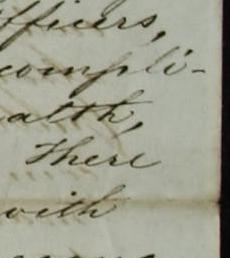 fficers,
compli-
alth,
There
with